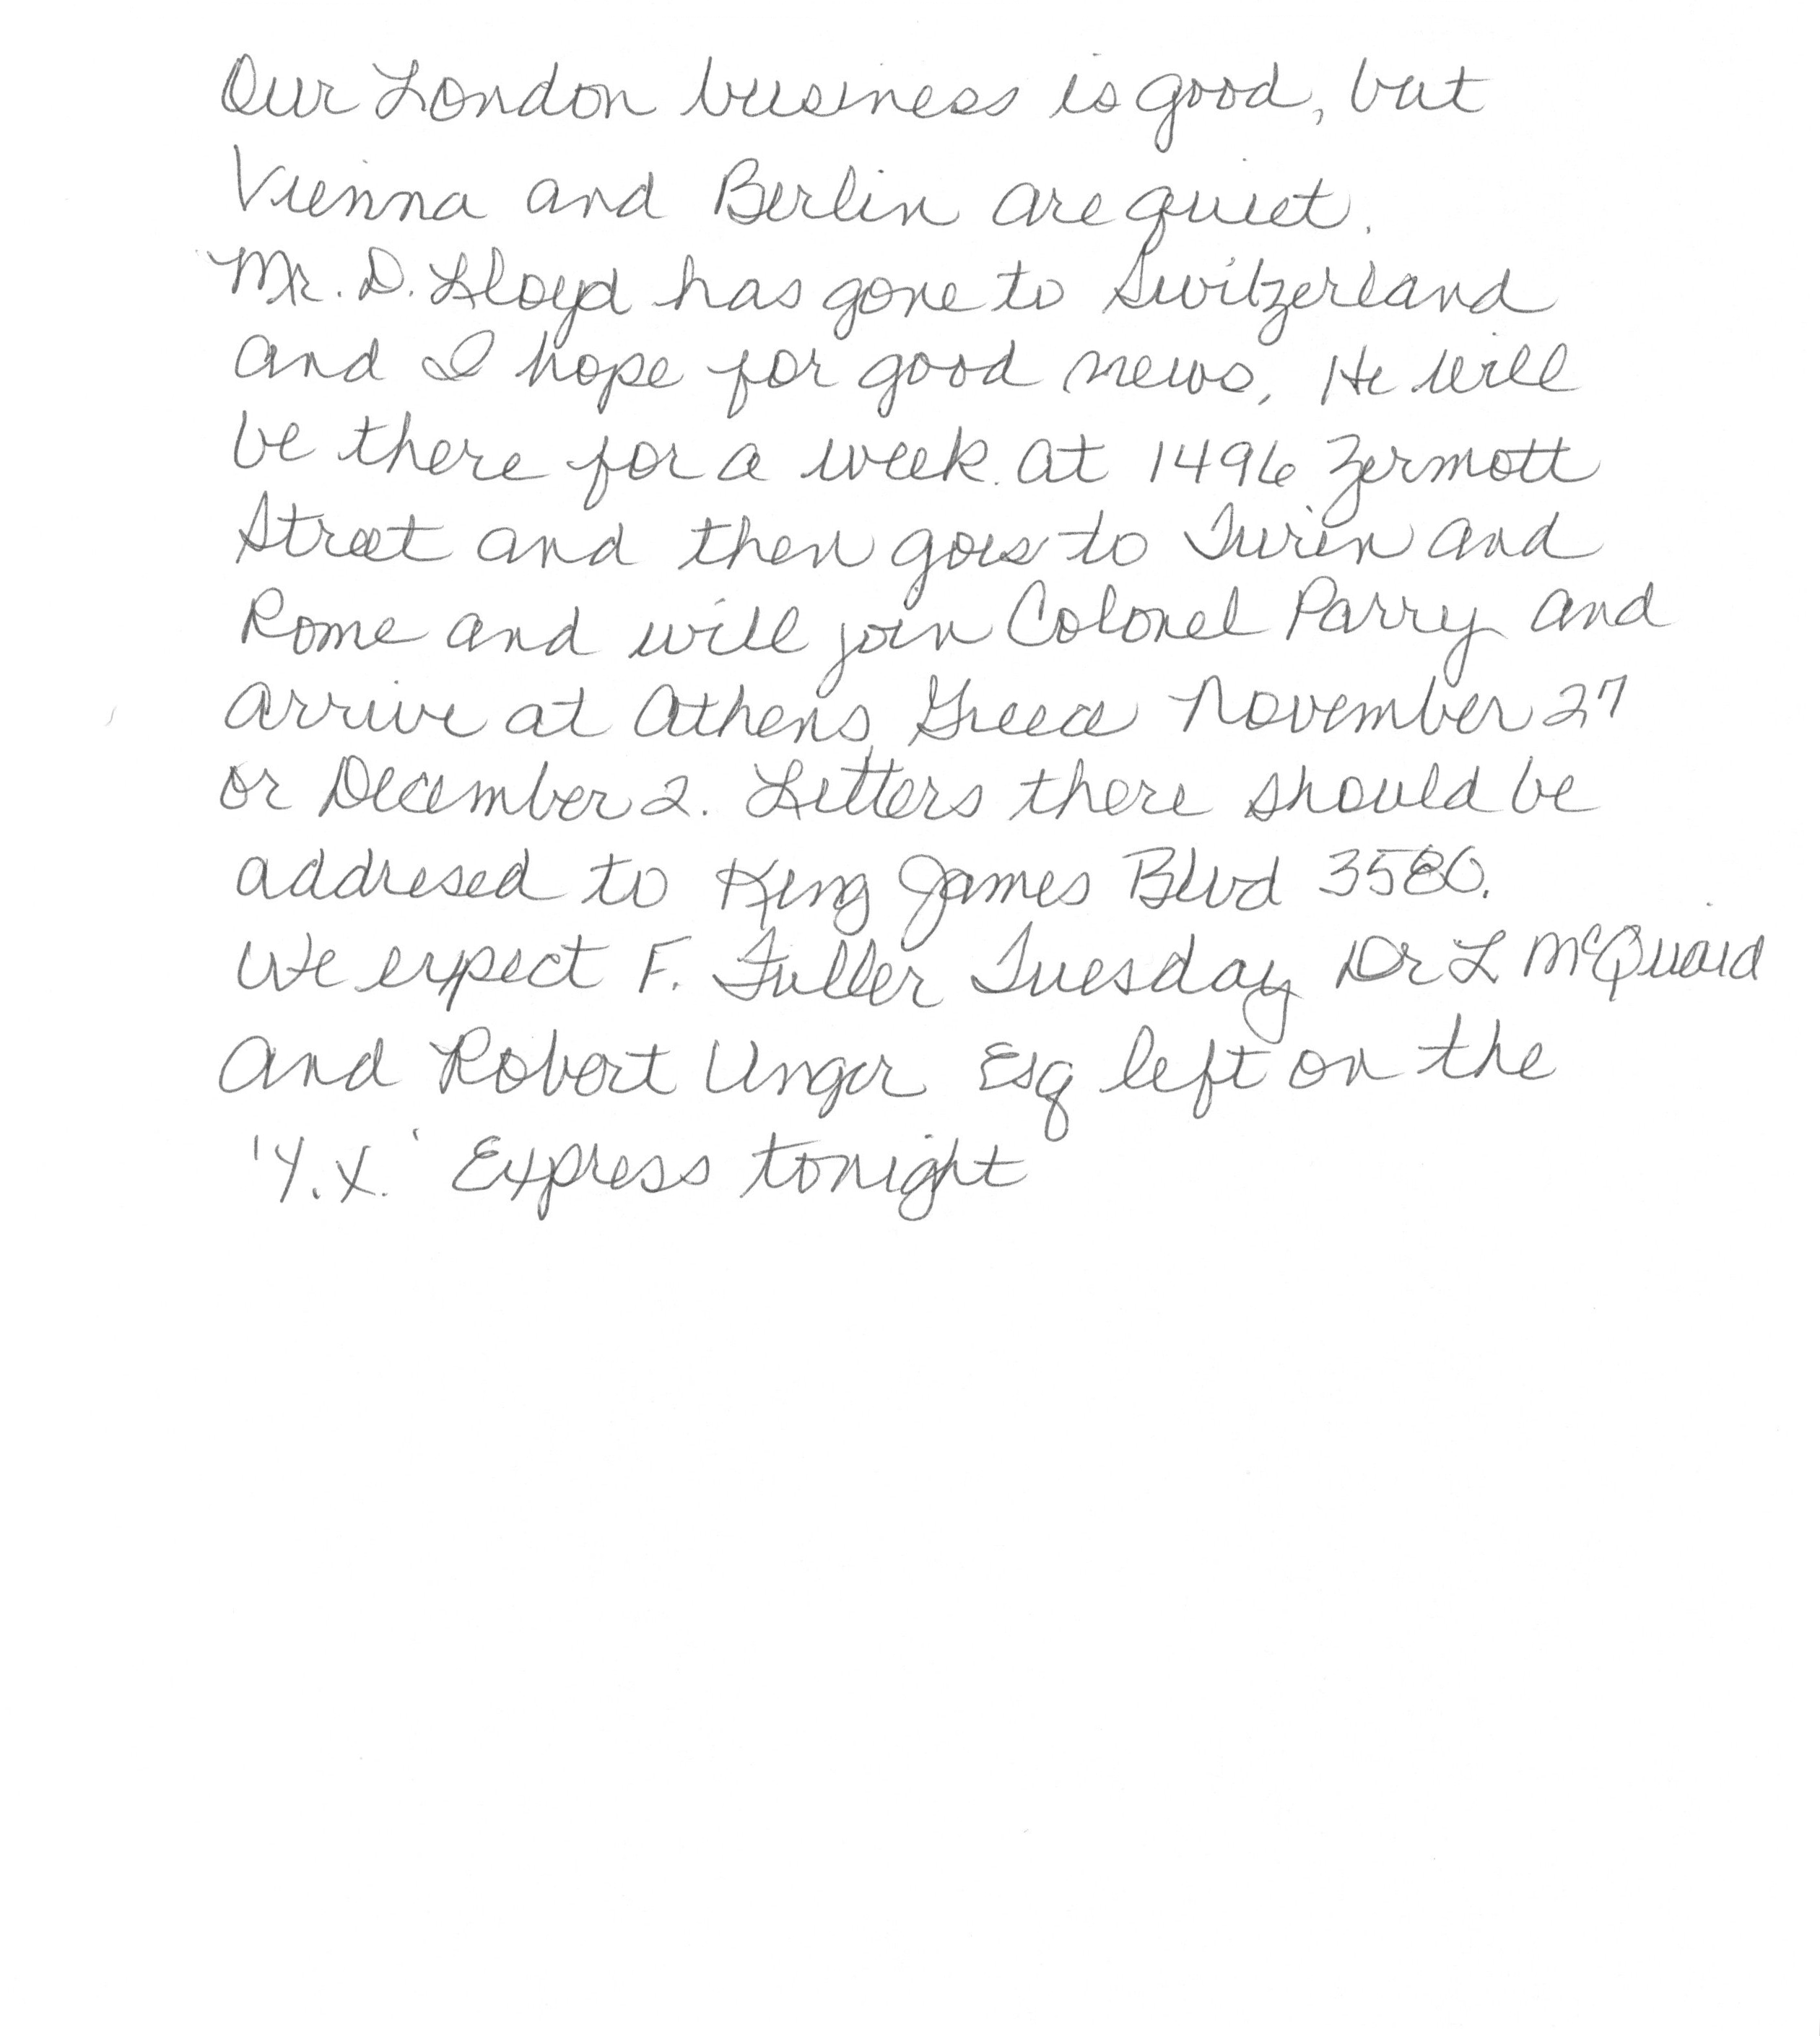 Our London business is good, but
Vienna and Berlin are quiet.
Mr. D. Lloyd has gone to Switzerland
and I hope for good news, He will
be there for a week at 1496 Zermott
Street and then goes to Turin and
Rome and will join Colonel Parry and
arrive at Athens, Greece November 27
or December 2. Letters there should be
addresed to King James Blvd 3580.
We expect F. Fuller Tuesday Dr L McQuaid
and Robert Unger Esq left on the
'Y.X.' Express tonight